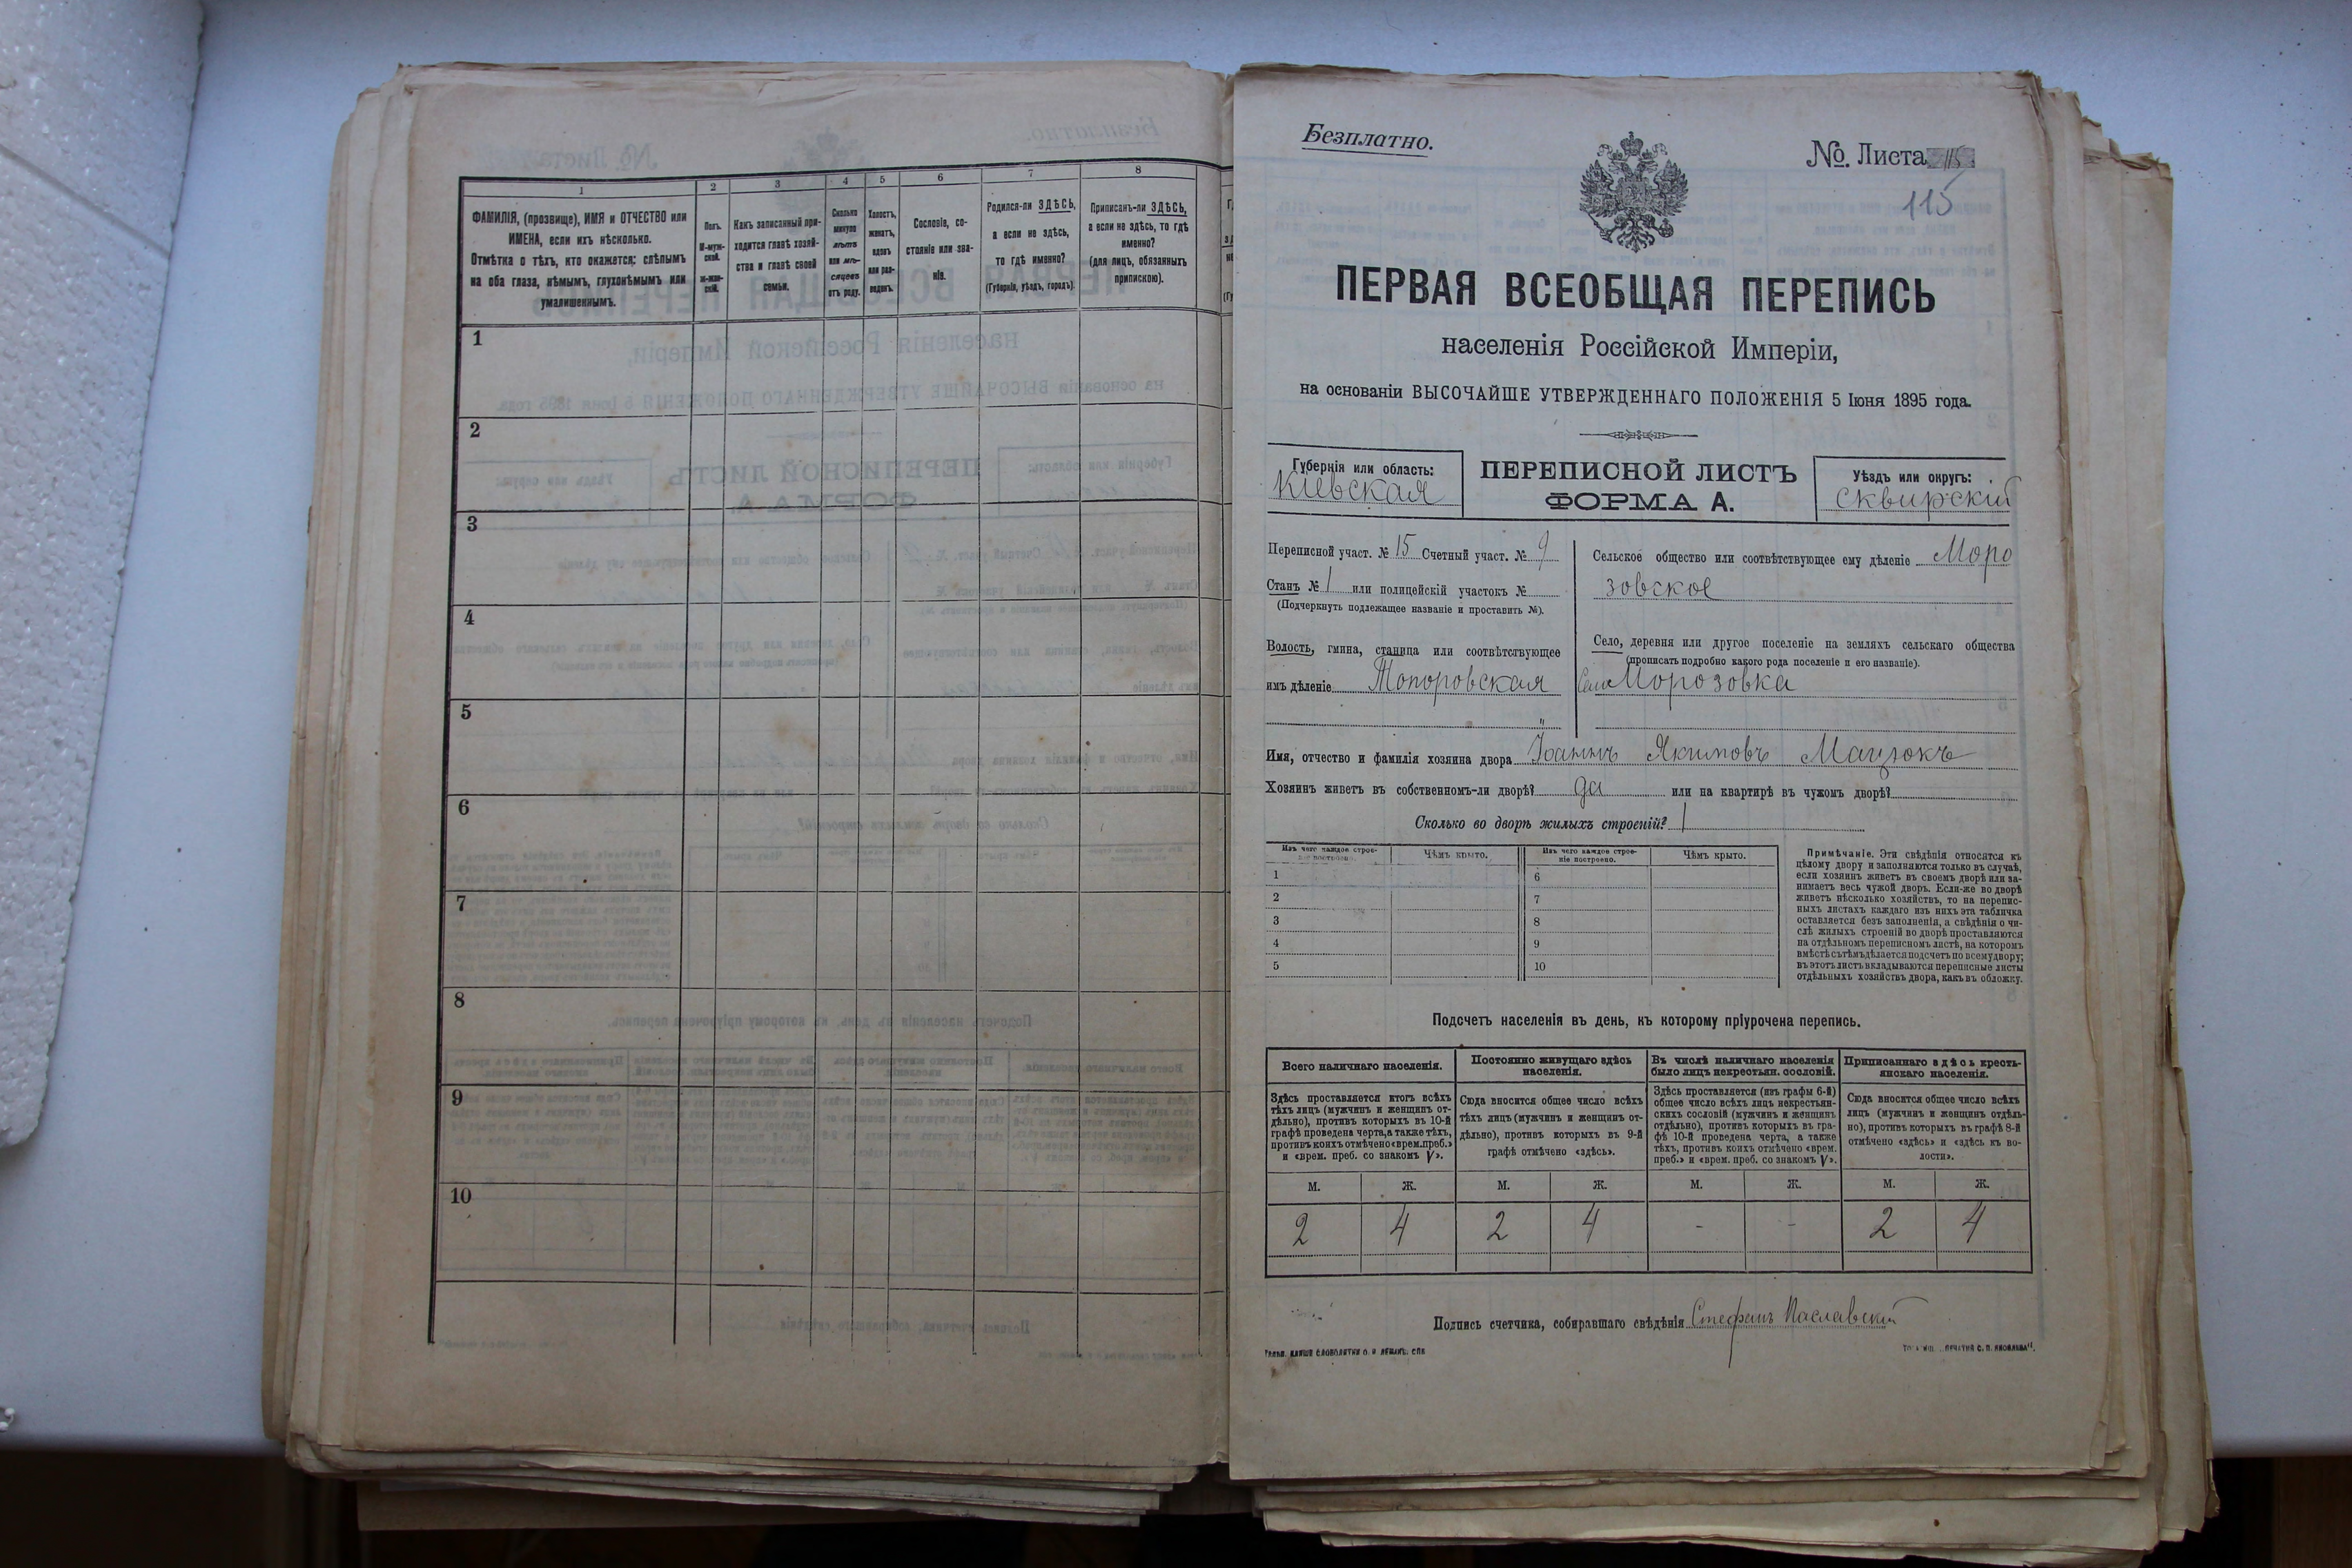 1
2
3
4
5
6
7
8
ФАМИЛІЯ, (прозвище), ИМЯ и ОТЧЕСТВО или
ИМЕНА, если ихъ нѣсколько.
Отмѣтка о тѣхъ, кто окажется: слѣпымъ
на оба глаза, нѣмымъ, глухонѣмымъ или
умалишеннымъ.
Полъ.
М-муж-
ской.
Ж-жен-
скій.
Какъ записанный при-
ходится главѣ хозяй-
ства и главѣ своей
семьи.
Сколько
минуло
лѣтъ
или мѣ-
сяцевъ
отъ роду.
Холостъ,
женатъ,
вдовъ
или раз-
веденъ.
Сословіе, со-
стояніе или зва-
ніе.
Родился-ли ЗДѢСЬ,
а если не здѣсь,
то гдѣ именно?
(Губернія, уѣздъ, городъ).
Приписанъ-ли ЗДѢСЬ,
а если не здѣсь, то гдѣ
именно?
(для лицъ, обязанныхъ
припискою).
1
2
3
4
5
6
7
8
9
10
Безплатно.
№. Листа 115
115
ПЕРВАЯ ВСЕОБЩАЯ ПЕРЕПИСЬ
населенія Россійской Имперіи,
на основаніи ВЫСОЧАЙШЕ УТВЕРЖДЕННАГО ПОЛОЖЕНІЯ 5 Іюня 1895 года.
Губернія или область:
Кіевская
ПЕРЕПИСНОЙ ЛИСТЪ
ФОРМА А.
Уѣздъ или округъ:
Сквирскій
Переписной участ. № 15 Счетный участ. № 9
Станъ № 1 или полицейскій участокъ №
(Подчеркнуть подлежащее названіе и проставить №).
Волость, гмина, станица или соотвѣтствующее
имъ дѣленіе Топоровская
"
Сельское общество или соотвѣтствующее ему дѣленіе Моро
зовское
Село, деревня или другое поселеніе на земляхъ сельскаго общества
(прописать подробно какого рода поселеніе и его названіе).
Село Морозовка
Имя, отчество и фамилія хозяина двора Іоаннъ Якимовъ Мацюкъ
Хозяинъ живетъ въ собственномъ-ли дворѣ? да или на квартирѣ въ чужомъ дворѣ?
Сколько во дворѣ жилыхъ строеній? 1
Изъ чего каждое строе-
ніе построено.
Чѣмъ крыто.
Изъ чего каждое строе-
ніе построено.
Чѣмъ крыто.
1
2
3
4
5
6
7
8
9
10
Примѣчаніе. Эти свѣдѣнія относятся къ
цѣлому двору и заполняются только въ случаѣ,
если хозяинъ живетъ въ своемъ дворѣ или за-
нимаетъ весь чужой дворъ. Если-же во дворѣ
живетъ нѣсколько хозяйствъ, то на перепис-
ныхъ листахъ каждаго изъ нихъ эта табличка
оставляется безъ заполненія, а свѣдѣнія о чи-
слѣ жилыхъ строеній во дворѣ проставляются
на отдѣльномъ переписномъ листѣ, на которомъ
вмѣстѣ съ тѣмъ дѣлается подсчетъ по всему двору;
въ этотъ листъ вкладываются переписные листы
отдѣльныхъ хозяйствъ двора, какъ въ обложку.
Подсчетъ населенія въ день, къ которому пріурочена перепись.
Всего наличнаго населенія.
Постоянно живущаго здѣсь
населенія.
Въ числѣ наличнаго населенія
было лицъ некрестьян. сословій.
Приписаннаго здѣсь кресть-
янскаго населенія.
Здѣсь проставляется итогъ всѣхъ
тѣхъ лицъ (мужчинъ и женщинъ от-
дѣльно), противъ которыхъ въ 10-й
графѣ проведена черта, а также тѣхъ,
противъ коихъ отмѣчено «врем. преб.»
и «врем. преб. со знакомъ V».
Сюда вносится общее число всѣхъ
тѣхъ лицъ (мужчинъ и женщинъ от-
дѣльно), противъ которыхъ въ 9-й
графѣ отмѣчено «здѣсь».
Здѣсь проставляется (изъ графы 6-й)
общее число всѣхъ лицъ некрестьян-
скихъ сословій (мужчинъ и женщинъ
отдѣльно), противъ которыхъ въ гра-
фѣ 10-й проведена черта, а также
тѣхъ, противъ коихъ отмѣчено «врем.
преб.» и «врем. преб. со знакомъ V».
Сюда вносится общее число всѣхъ
лицъ (мужчинъ и женщинъ отдѣль-
но), противъ которыхъ въ графѣ 8-й
отмѣчено «здѣсь» и «здѣсь къ во-
лости».
М. Ж. М. Ж. М. Ж. М. Ж.
2 4 2 4 - - 2 4
Подпись счетчика, собиравшаго свѣдѣнія Стефанъ Маславскій